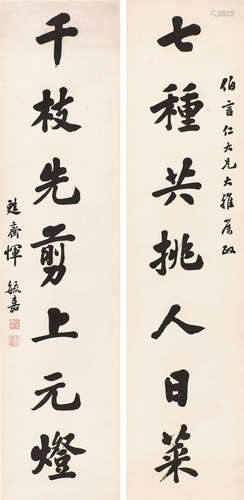 伯言仁大兄大雅屬政
七種共挑人日菜
千枝先剪上元燈
甦齋惲毓嘉